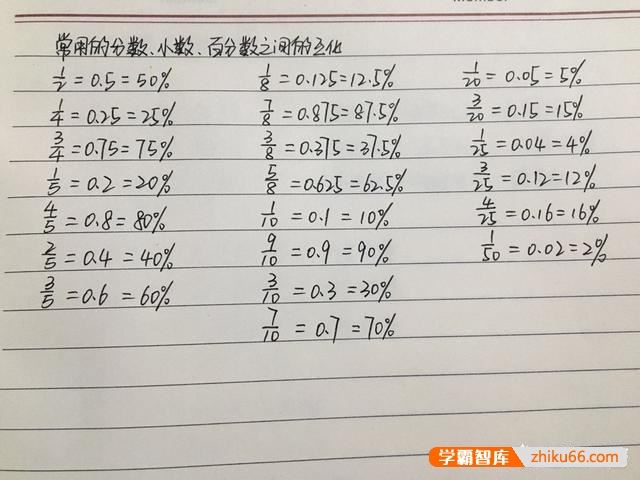 Member
常用的分数、小数、百分数之间的互化
1/2 = 0.5 = 50%
1/4 = 0.25 = 25%
3/4 = 0.75 = 75%
1/5 = 0.2 = 20%
4/5 = 0.8 = 80%
2/5 = 0.4 = 40%
3/5 = 0.6 = 60%
1/8 = 0.125 = 12.5%
7/8 = 0.875 = 87.5%
3/8 = 0.375 = 37.5%
5/8 = 0.625 = 62.5%
1/10 = 0.1 = 10%
9/10 = 0.9 = 90%
3/10 = 0.3 = 30%
7/10 = 0.7 = 70%
1/20 = 0.05 = 5%
3/20 = 0.15 = 15%
1/25 = 0.04 = 4%
3/25 = 0.12 = 12%
4/25 = 0.16 = 16%
1/50 = 0.02 = 2%
学霸智库 zhiku66.com